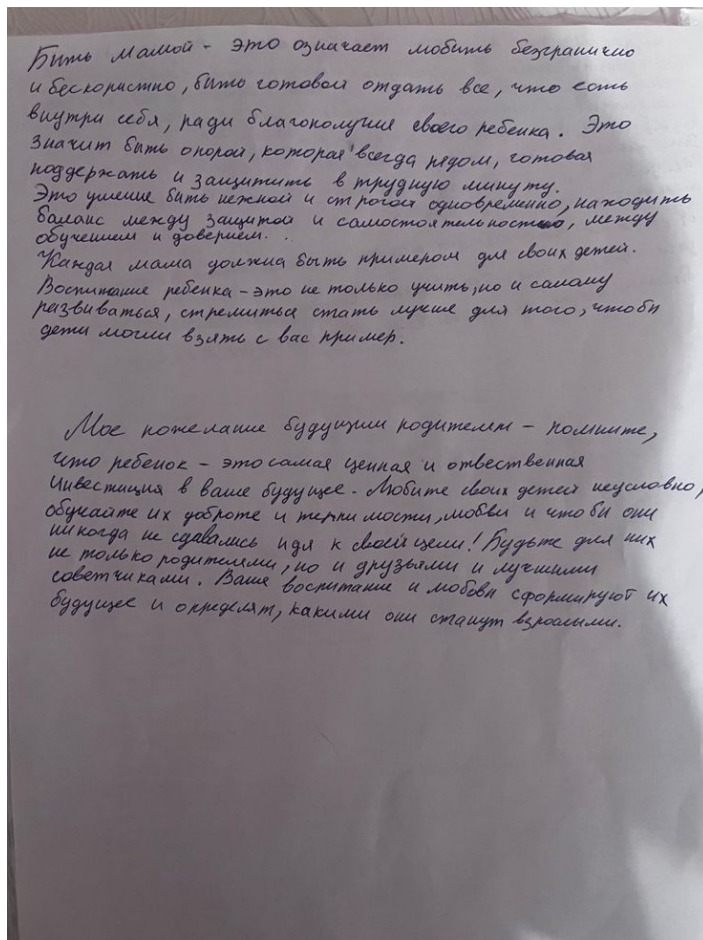 Быть мамой - это означает любить безгранично
и бескорыстно, быть готовой отдать все, что есть
внутри себя, ради благополучия своего ребенка. Это
значит быть опорой, которая всегда рядом, готовая
поддержать и защитить в трудную минуту.
Это умение быть нежной и строгой одновременно, находить
баланс между защитой и самостоятельностью, между
обучением и доверием.
Каждая мама должна быть примером для своих детей.
Воспитание ребенка - это не только учить, но и самому
развиваться, стремиться стать лучше для того, чтобы
дети могли взять с вас пример.
Мое пожелание будущим родителям - помните,
что ребенок - это самая ценная и отвественная
инвестиция в ваше будущее. Любите своих детей неусловно,
обучайте их доброте и терпимости, любви и чтобы они
никогда не сдавались идя к своей цели! Будьте для них
не только родителями, но и друзьями и лучшими
советчиками. Ваше воспитание и любовь сформируют их
будущее и определят, какими они станут взрослыми.